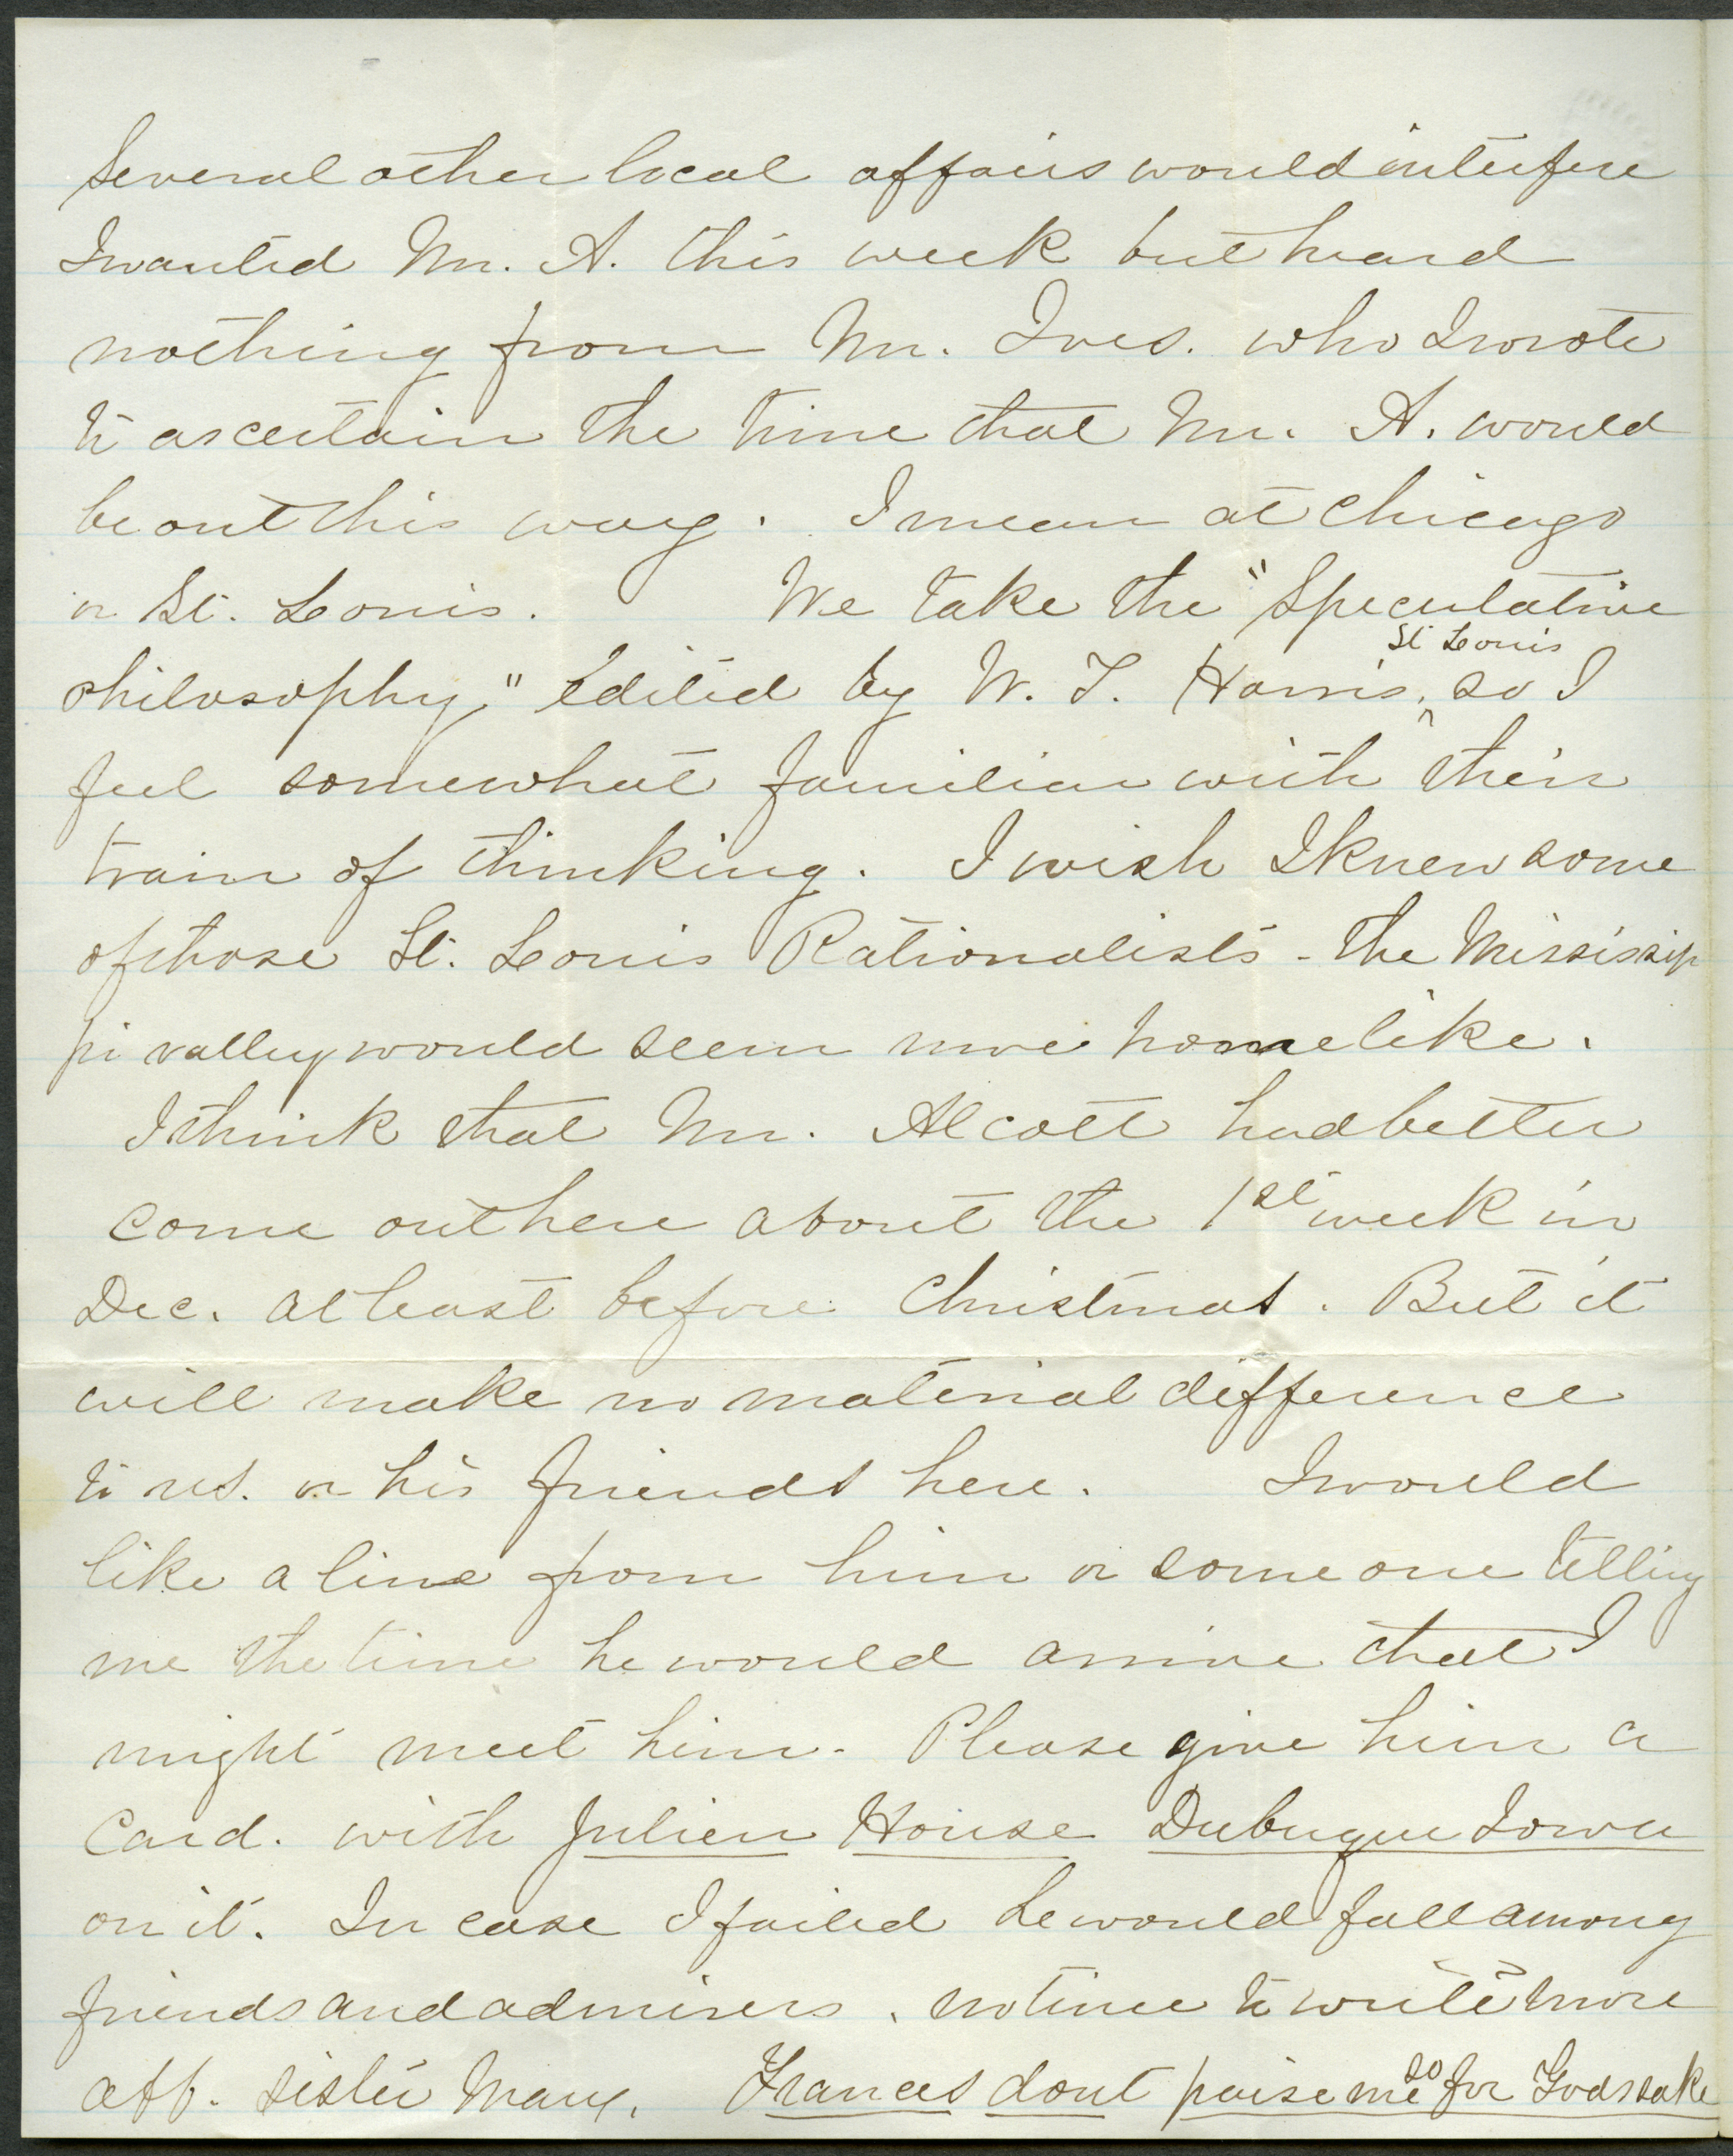 Several other local affairs would interfere
I wanted Mr. A. this week but heard
nothing from Mr. Ives. who I wrote
to ascertain the time that Mr. A. would
be out this way. I mean at Chicago
or St. Louis. We take the "Speculative
St Louis
philosophy," Edited by W. T. Harris, ^ so I
feel somewhat familiar with their
train of thinking. I wish I knew some
of those St. Louis Rationalists - the Mississip
pi valley would seem more homelike.
I think that Mr. Alcott had better
come out here about the 1st week in
Dec. at least before Christmas. But it
will make no material difference
to us. or his friends here. I would
like a line from him or some one telling
me the time he would arrive that I
might meet him - Please give him a
Card. with Julien House Dubuque Iowa
on it. In case I failed he would fall among
friends and admirers. no time to write more
aff. sister Mary. Frances dont praise me so for Gods sake